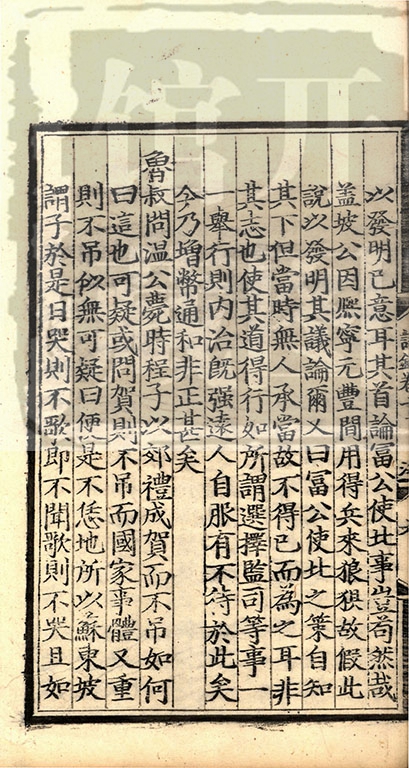 以發明已意耳其首論富公使北事豈苟然哉
盖坡公因熙寧元豐間用得兵來狼狽故假此
說以發明其議論爾又曰冨公使北之策自知
其下但當時無人承當故不得已而為之耳非
其志也使其道得行如所謂選擇監司等事一
一舉行則内治既强遠人自服有不待於此矣
今乃增幣通和非正甚矣
魯叔問溫公薨時程子以郊禮成賀而不吊如何
曰這也可疑或問賀則不吊而國家事體又重
則不吊似無可疑曰便是不恁地所以蘇東坡
謂子於是日哭則不歌即不聞歌則不哭且如